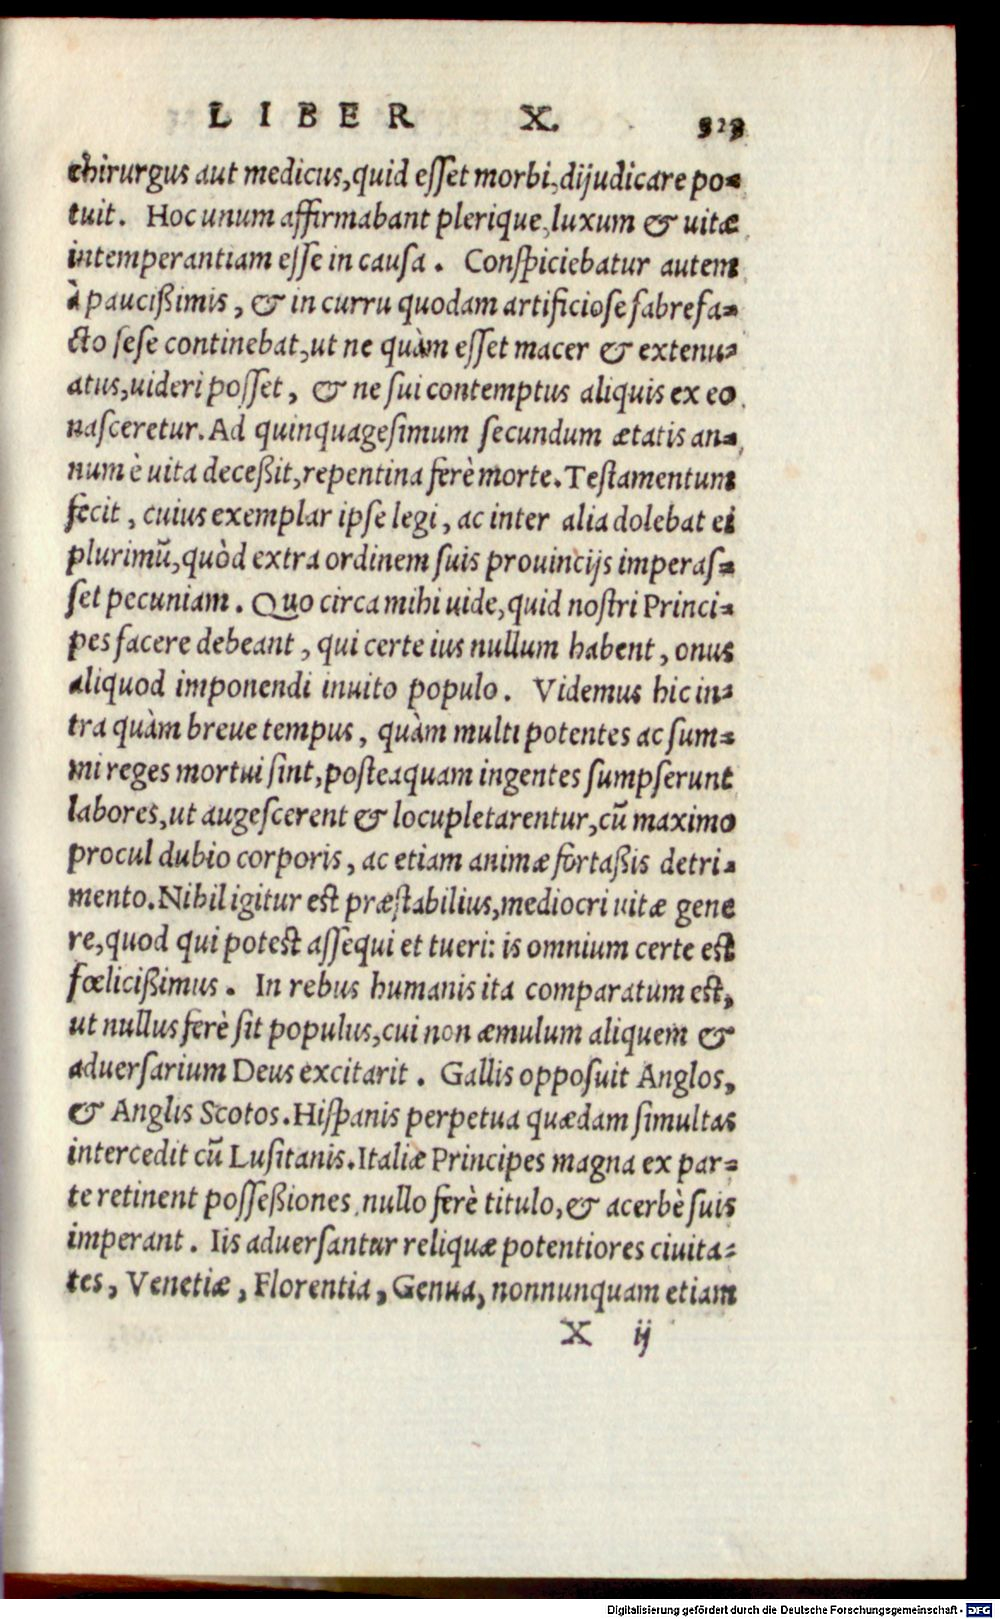 LIBER X. 323
chirurgus aut medicus, quid esset morbi, dijudicare po-
tuit. Hoc unum affirmabant plerique, luxum & uitæ
intemperantiam esse in causa. Conspiciebatur autem
à paucißimis, & in curru quodam artificiose fabrefa-
cto sese continebat, ut ne quàm esset macer & extenu-
atus, uideri posset, & ne sui contemptus aliquis ex eo
nasceretur. Ad quinquagesimum secundum ætatis an-
num è uita deceßit, repentina ferè morte. Testamentum
fecit, cuius exemplar ipse legi, ac inter alia dolebat ei
plurimũ, quòd extra ordinem suis prouincijs imperas-
set pecuniam. Quo circa mihi uide, quid nostri Princi-
pes facere debeant, qui certe ius nullum habent, onus
aliquod imponendi inuito populo. Videmus hic in-
tra quàm breue tempus, quàm multi potentes ac sum-
mi reges mortui sint, posteaquam ingentes sumpserunt
labores, ut augescerent & locupletarentur, cũ maximo
procul dubio corporis, ac etiam animæ fortaßis detri-
mento. Nihil igitur est præstabilius, mediocri uitæ gene
re, quod qui potest assequi et tueri: is omnium certe est
fœlicißimus. In rebus humanis ita comparatum est,
ut nullus ferè sit populus, cui non æmulum aliquem &
aduersarium Deus excitarit. Gallis opposuit Anglos,
& Anglis Scotos. Hispanis perpetua quædam simultas
intercedit cũ Lusitanis. Italiæ Principes magna ex par-
te retinent posseßiones nullo ferè titulo, & acerbè suis
imperant. Iis aduersantur reliquæ potentiores ciuita-
tes, Venetiæ, Florentia, Genua, nonnunquam etiam
X ij
Digitalisierung gefördert durch die Deutsche Forschungsgemeinschaft - DFG